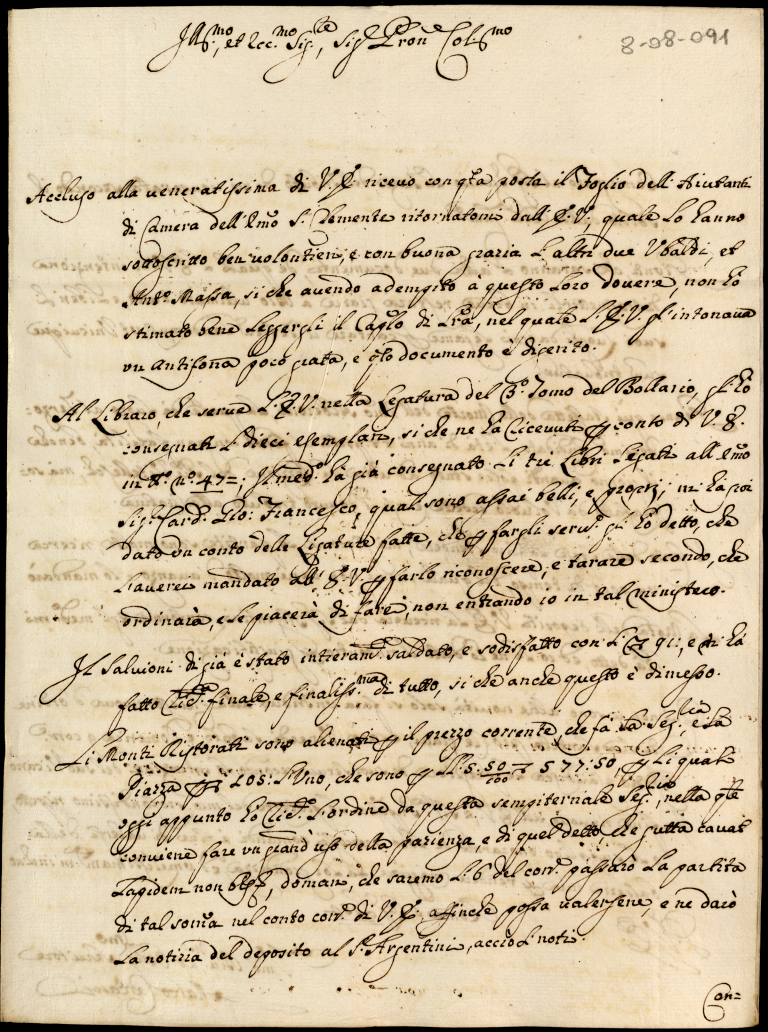 Ill.mo, et Ecc.mo Sig.re, Sig.r Pron Col.mo
8-08-091
Accluso alla veneratissima di V. E. ricevo con q.ta posta il Foglio dell'Aiutanti
di Camera dell'Emo S. Clemente ritornatomi dall'E. V., quale lo hanno
sottoscritto ben volontieri, e con buona grazia l'altri due Ubaldi, et
Ant.o Massa, si che avendo adempito à questo loro dovere, non hò
stimato bene leggergli il Caplo di Lra, nel quale l'E. V. gl'intonava
un antifona poco grata, e q.to documento è digerito.
Al Libraro, che serve l'E. V. nella legatura del 3.o Tomo del Bollario, gl'hò
consegnati li dieci esemplari, si che ne hà ricevuti p conto di V. E.
in tt.o n.o 47=; Il med.o hà già consegnato li trè Libri legati all'Emo
Sig.r Card. Gio: Francesco, quali sono assai belli, e proprij; mi hà poi
dato un conto delle ligature fatte, che p fargli serv.o gl'hò detto, che
l'averei mandato all'E. V. p farlo riconoscere, e tarare secondo, che
ordinarà, e le piacerà di fare, non entrando io in tal ministero.
Il Salvioni di già è stato intieram.te saldato, e sodisfatto con li 91:, e mi hà
fatto ric.ta finale, e finaliss.ma di tutto, si che anche questo è dimesso.
Li Monti Ristorati sono alienati p il prezzo corrente, che fà la Seg.ria, e la
Piazza 105: l'uno, che sono p ll. 5. 50/100 577:50, p li quali
oggi appunto hò ric.to l'ordine da questa sempiternale Seg.ria, nella q.le
conviene fare un grand'uso della pazienza, e di quel detto, che gutta cavat
lapidem non bis, domani, che saremo li 6 del corr. passarò la partita
di tal soma nel conto corr. di V. E., affinche possa valersene, e ne darò
la notizia del deposito al S. Argentini, acciò li noti.
Con=